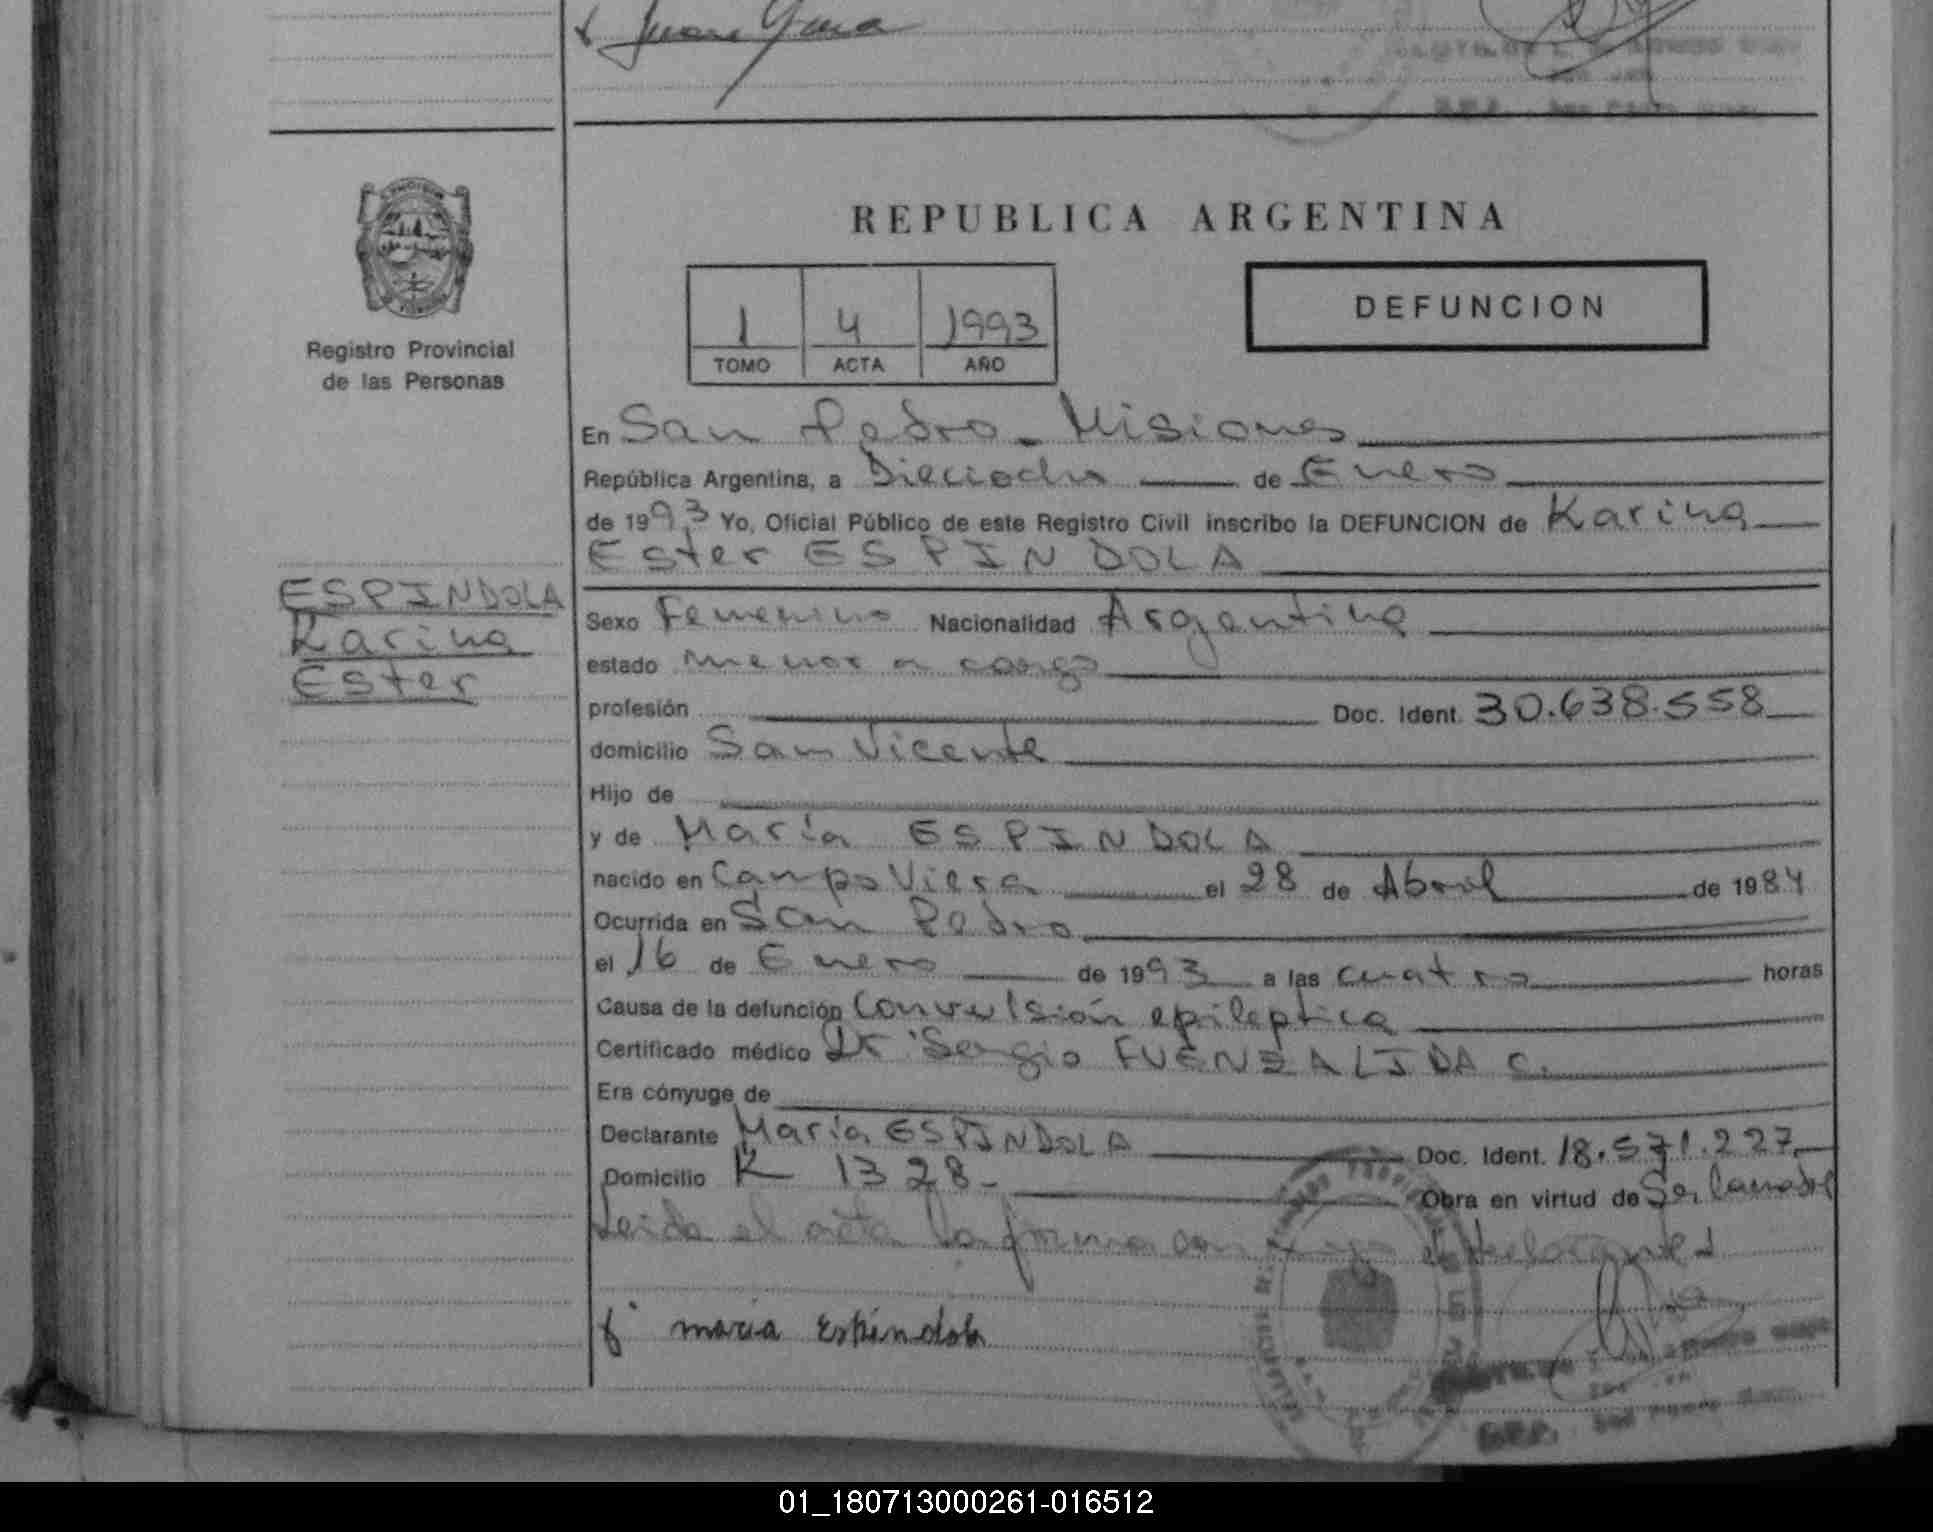 REPUBLICA ARGENTINA
1 4 1993
TOMO ACTA AÑO
DEFUNCION
Registro Provincial
de las Personas
ESPINDOLA
Karina
Ester
En San Pedro - Misiones
República Argentina, a Dieciocho de Enero
de 1993 Yo, Oficial Público de este Registro Civil inscribo la DEFUNCION de Karina
Ester ESPINDOLA
Sexo Femenino Nacionalidad Argentina
estado menor a cargo
profesión Doc. Ident. 30.638.558
domicilio San Vicente
Hijo de
y de María ESPINDOLA
nacido en Campo Viera el 28 de Abril de 1984
Ocurrida en San Pedro
el 16 de Enero de 1993 a las cuatro horas
Causa de la defunción Convulsión epileptica
Certificado médico Dr. Sergio FUENZALIDA C.
Era cónyuge de
Declarante María ESPINDOLA Doc. Ident. 18.571.227
Domicilio K 1328- Obra en virtud de
Leida el acta la firma con el declarante
maria Espindola
01_180713000261-016512